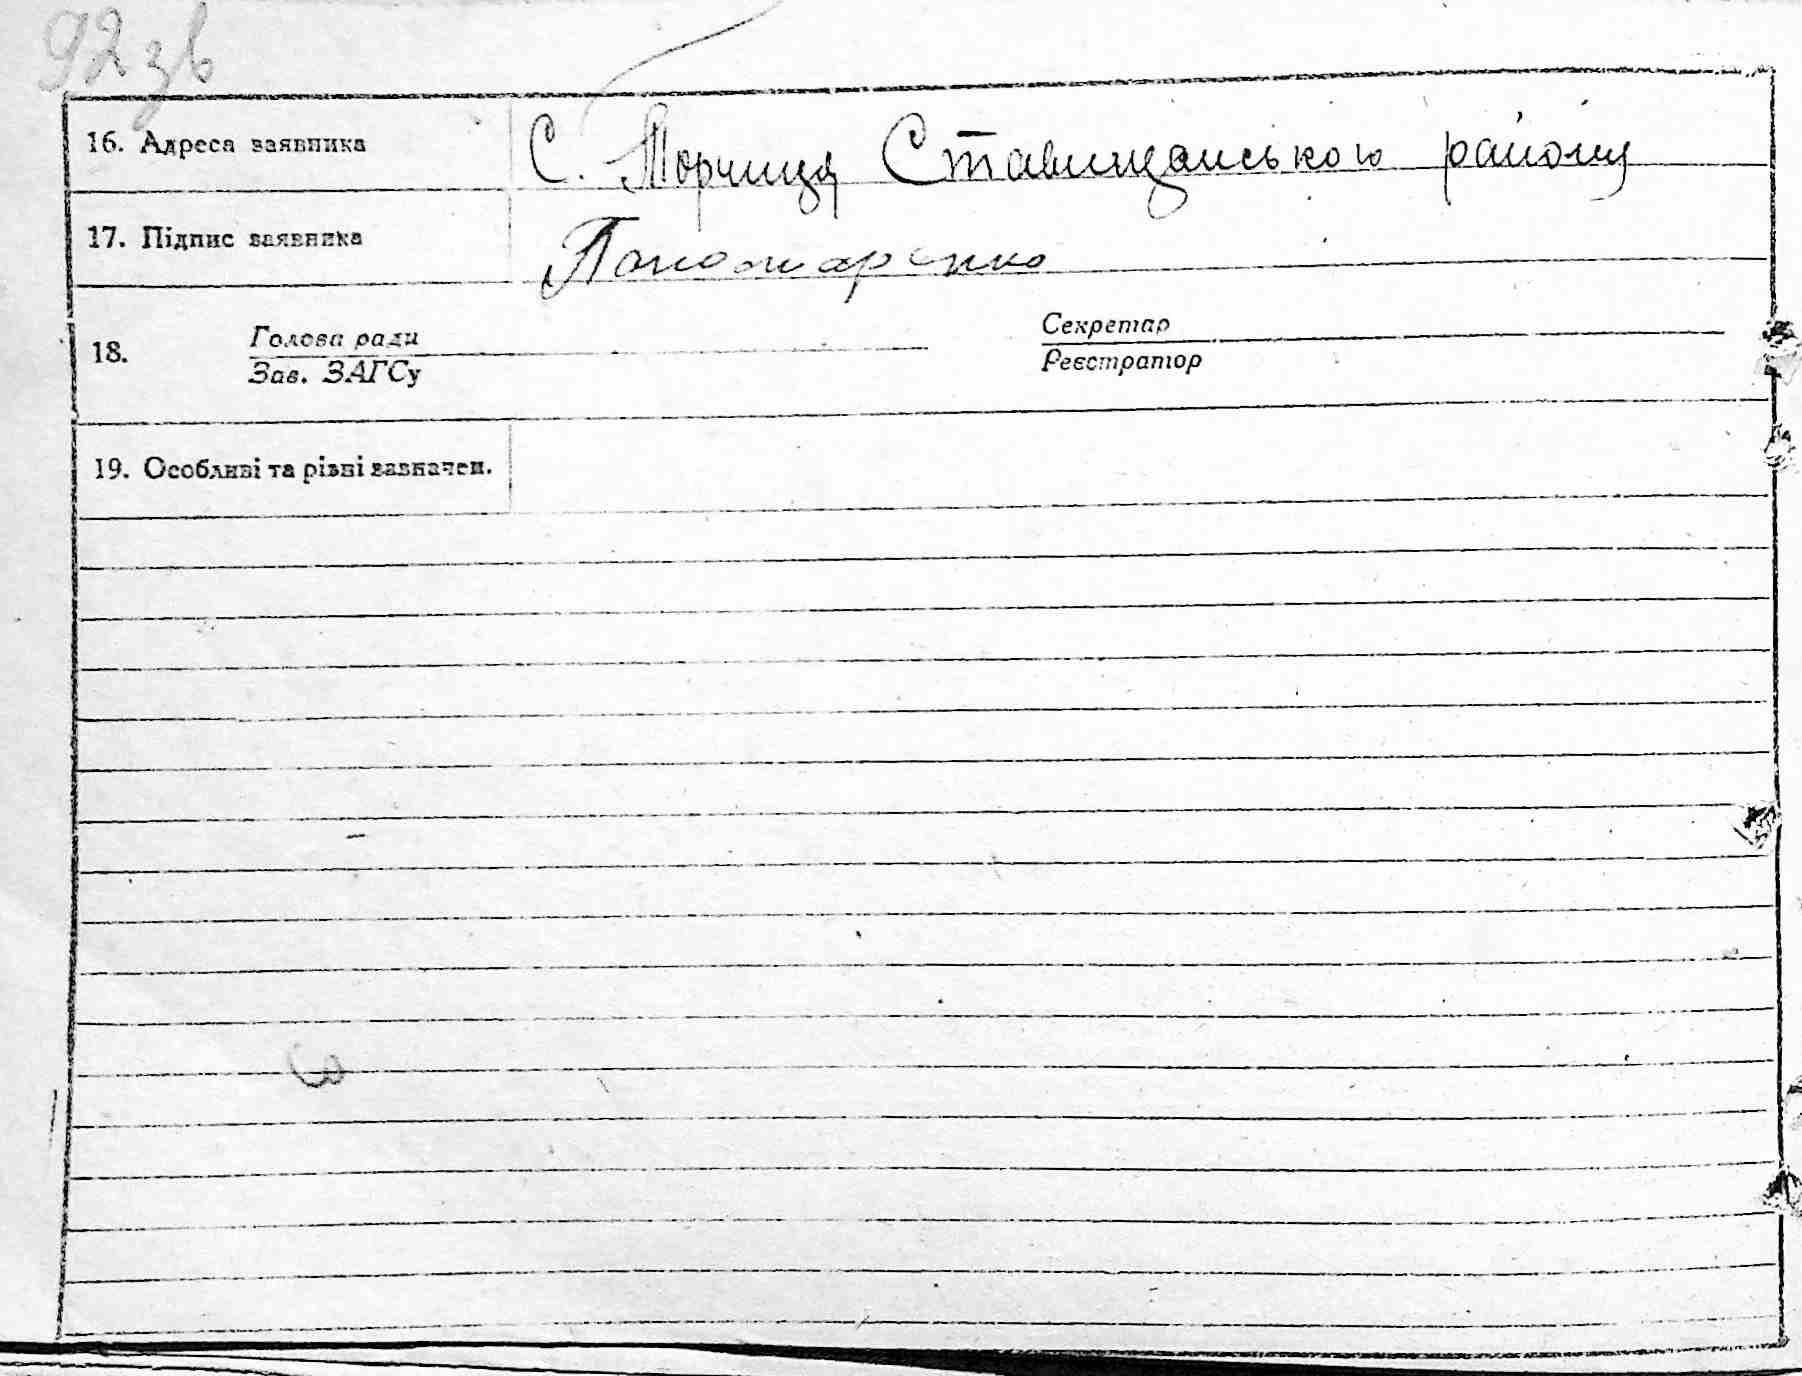 92 зв
16. Адреса заявника С. Торчиця Ставищанського району
17. Підпис заявника Пономаренко
18. Голова ради Секретар
Зав. ЗАГСу Реєстратор
19. Особливі та різні зазначен.